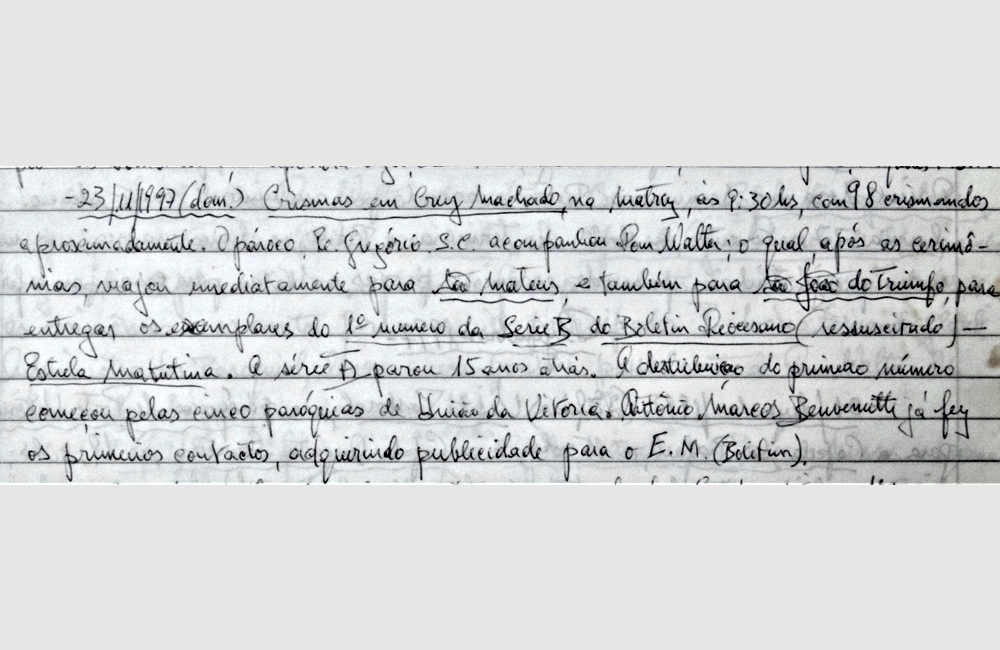 -23/11/1997 (dom.) Crismas em Cruz Machado, na Matriz, às 9:30 hs, com 98 crismandos
aproximadamente. O pároco, Pe. Gregório S.C. acompanhou Dom Walter; o qual, após as cerimô-
nias, viajou imediatamente para São Mateus, e também para São João do Triunfo, para
entregar os exemplares do 1º número da Serie B do Boletin Diocesano (ressuscitado) —
Estrela Matutina. A série A parou 15 anos atrás. A destribuição do primeiro número
começou pelas cinco paróquias de União da Vitoria. Antônio Marcos Benvenutti já fez
os primeiros contactos, adquirindo publicidade para o E.M. (Boletim).